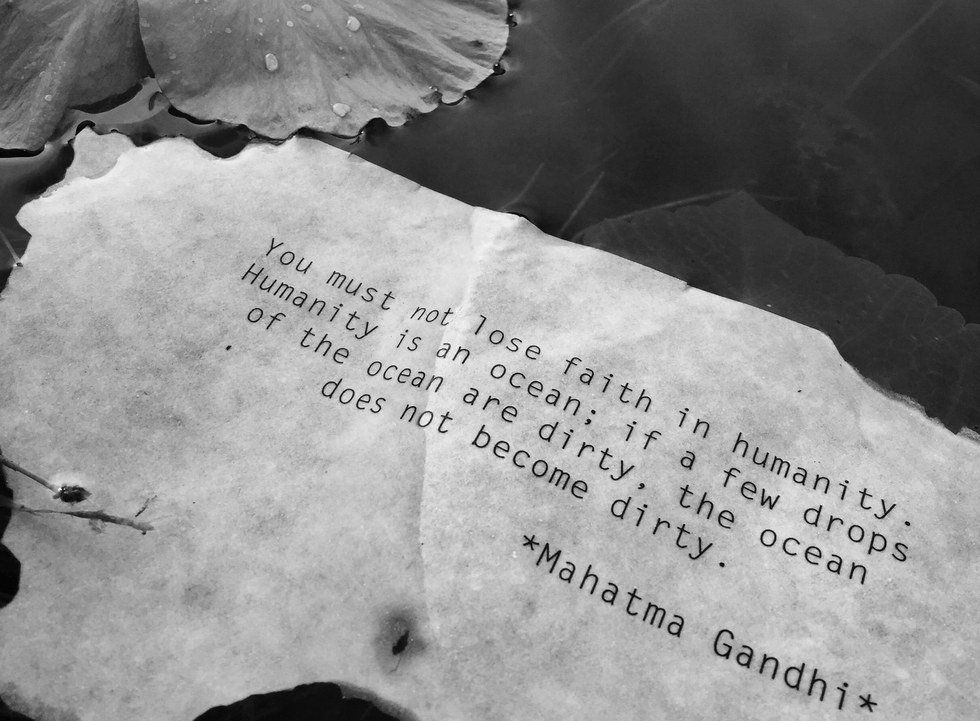 You must not lose faith in humanity.
Humanity is an ocean; if a few drops
of the ocean are dirty, the ocean
does not become dirty.
*Mahatma Gandhi*